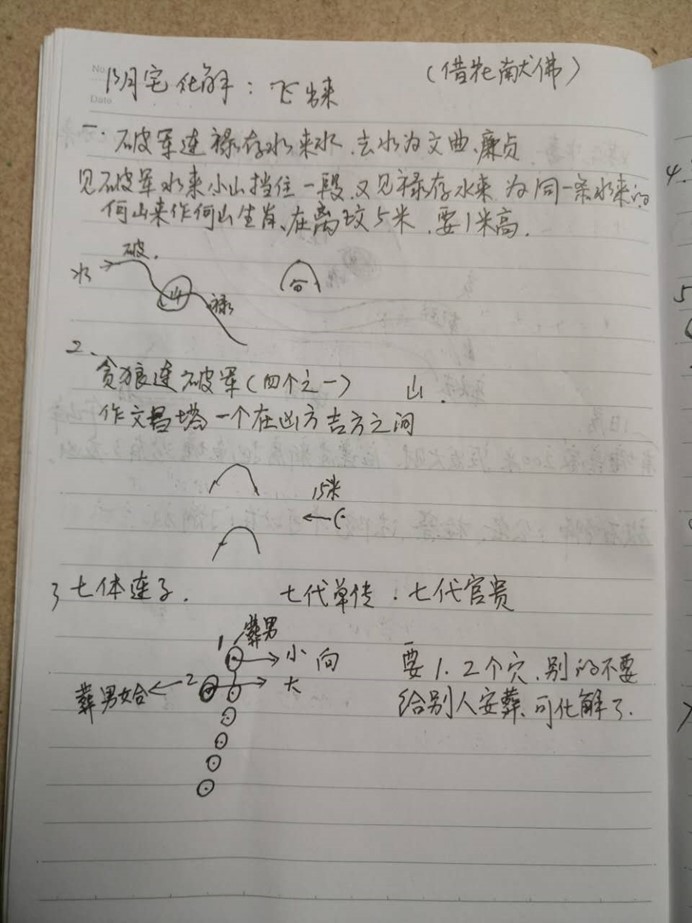 阴宅化解：飞出来
（借花献佛）
No
Date
一. 破军连禄存水来水，去水为文曲、廉贞
见破军水来小山挡住一段，又见禄存水来 为同一条水来的
何山来作何山生肖、在离坟5米，要1米高.
水
破.
山
禄
2.
贪狼连破军（四个之一） 山.
作文昌塔一个在凶方吉方之间
15米
3 七体连子. 七代单传.七代官贵
1 葬男
小 向
葬男女合
2
大
要1.2个穴、别的不要
给别人安葬、可化解了.
4.
5